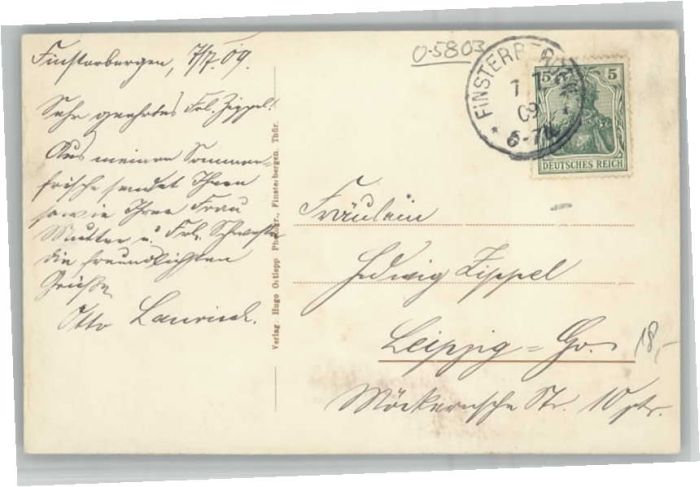 Finsterbergen, 7/7.09.
Sehr geehrtes Frl. Zippel!
Aus meiner Sommer-
frische sendet Ihnen
sowie Ihrer Frau
Mutter u. Frl. Schwester
die freundlichsten
Grüße
Otto
Verlag Hugo Ostlepp Photogr., Finsterbergen. Thür.
0-5803
FINSTERBERGEN
7 7
09
* 6-7N *
5 5
DEUTSCHES REICH
Fräulein
Hedwig Zippel
Leipzig-Go.
18,-
Möckernsche Str. 10 ptr.